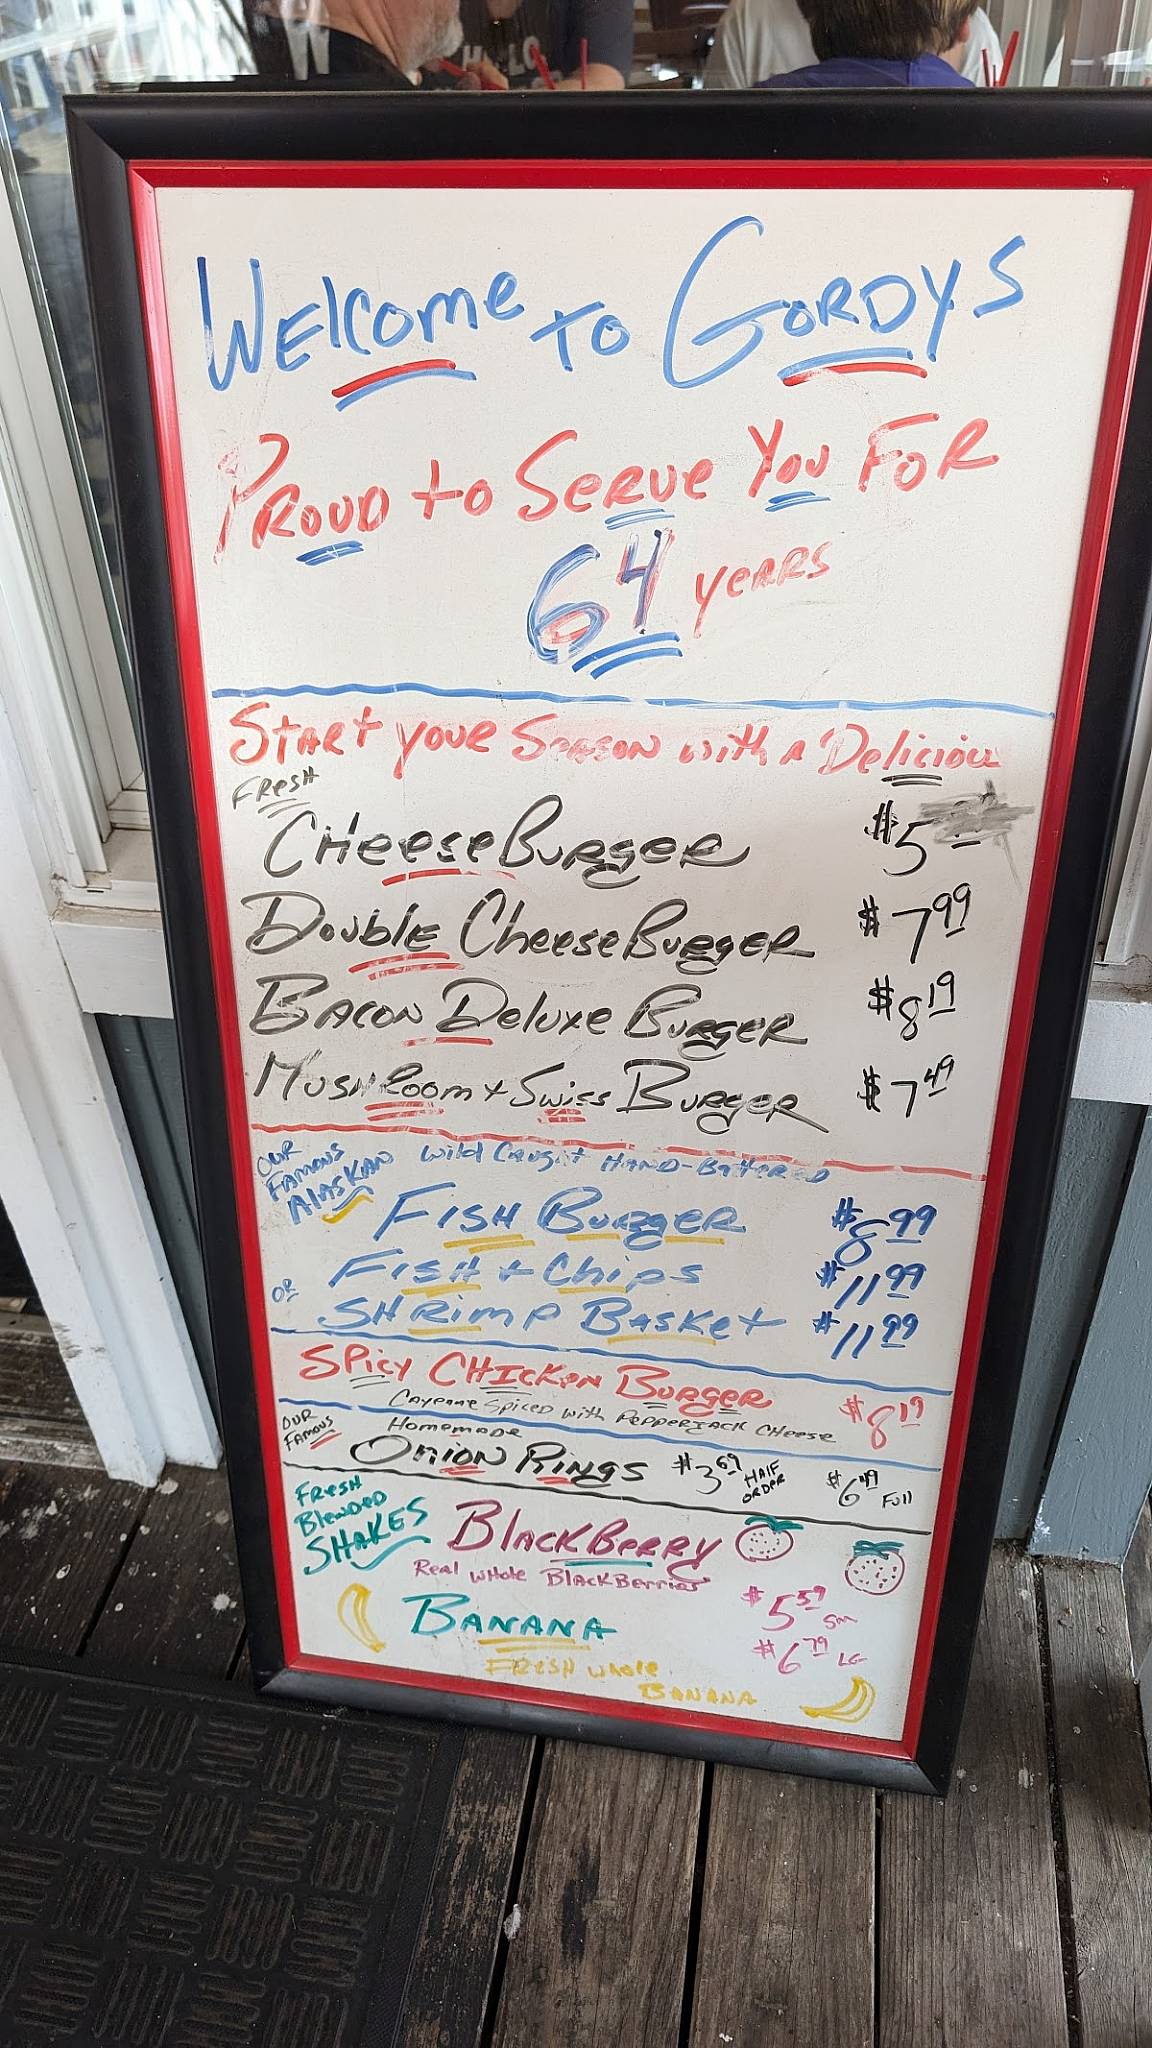 WELCOME TO GORDYS
PROUD to SERVE YOU FOR
64 years
START YOUR SEASON with A Delicious
FRESH
CHeese BURGER $5
DOUBLE Cheese BURGER $7.99
BACON Deluxe BURGER $8.19
MUSHROOM + Swiss BURGER $7.49
OUR FAMOUS ALASKAN
Wild Caught HAND-Battered
FISH BURGER $8.99
FISH + Chips $11.99
OR SHRIMP BASKET $11.99
SPicy CHICKEN BURGER $8.19
Cayenne Spiced with PEPPERJACK CHEESE
OUR FAMOUS
Homemade
ONION RINGS $3.69 HALF ORDER $6.49 Full
FRESH
Blended
SHAKES
BLACKBERRY
Real whole BlackBerries
BANANA
$5.59 sm
$6.79 LG
FRESH whole
BANANA